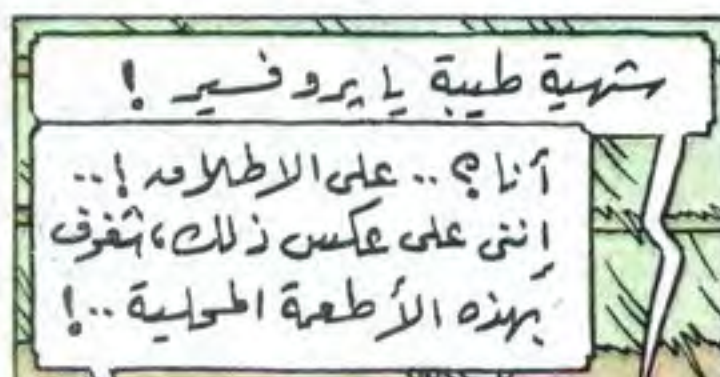 شهية طيبة يا پروفسير !
أنا ؟ .. على الاطلاق ! ..
إنني على عكس ذلك ، شغوف
بهذه الأطعمة المحلية .. !